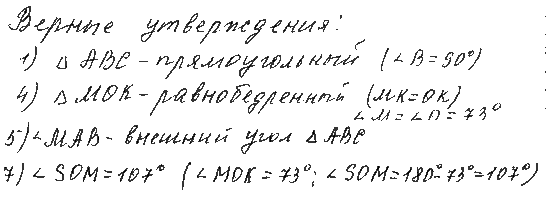 Верные утверждения:
1) △ ABC - прямоугольный (∠B=90°)
4) △ MOK - равнобедренный (MK=OK)
∠M=∠O=73°
5) ∠MAB - внешний угол △ ABC
7) ∠SOM=107° (∠MOK=73°; ∠SOM=180°-73°=107°)